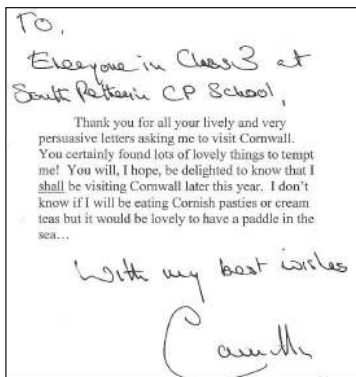 To,
Everyone in Class 3 at
South Petherwin CP School,
Thank you for all your lively and very
persuasive letters asking me to visit Cornwall.
You certainly found lots of lovely things to tempt
me! You will, I hope, be delighted to know that I
shall be visiting Cornwall later this year. I don't
know if I will be eating Cornish pasties or cream
teas but it would be lovely to have a paddle in the
sea…
With my best wishes
Camilla